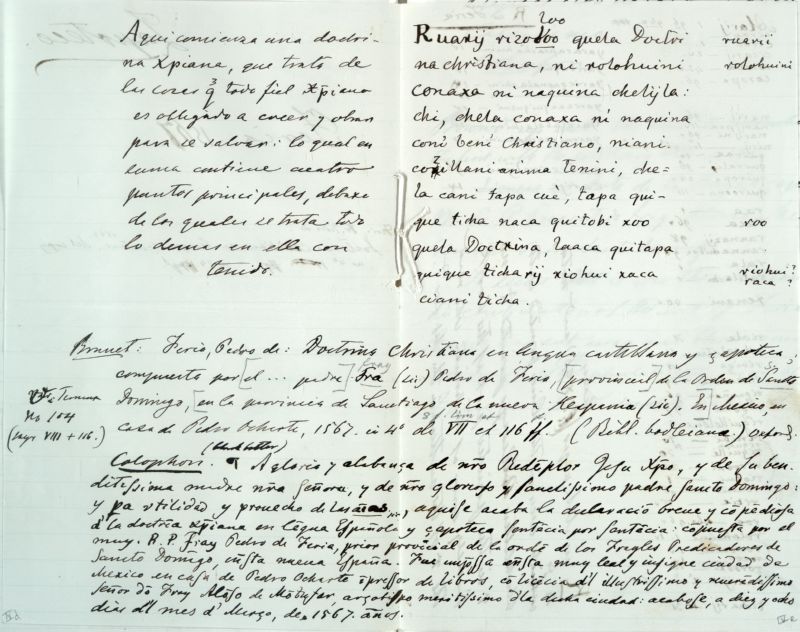 Aqui comienza una doctri-
na Xp̃iana, que trata de
las cosas q̃ todo fiel Xp̃iano
es obligado a creer y obrar
para se salvar: lo qual en
suma contiene cuatro
puntos principales, debaxo
de los quales se trata todo
lo demas en ella con
tenido.
Ruarij rizoóoo quela Doctri
loo
na christiana, ni rolohuini
conaxa ni naquina chelijla:
chi, chela conaxa ni naquina
coni beni Christiano, niani
illani anima tenini, che=
la cani tapa cuè, tapa qui-
que ticha naca quitobi xoo
quela Doctxina, laaca quitapa
quique ticha rij xiohui xaca
ciani ticha.
ruarii
rolohuini
roo
riohui?
raca?
Brunet: Feria, Pedro de: Doctrina Christiana en lengua castellana y çapoteca,
compuesta por [el ... padre] Fra (sic) Pedro de Feria, [provincial] de la Orden de Sancto
Domingo, [en la provincia de Sanctiago de la nueva Hespania (sic). En] Mexico, en
casa de Pedro Ocharte, 1567. in 4º de VIII et 116 ff. (Bibl. bodleiana) Oxford.
No 104
(pags VIII + 116.)
(black letter)
Colophon. ¶ A gloria y alabança de nr̃o Redẽptor Jesu Xp̃o, y de su ben-
ditissima madre nr̃a señora, y de nr̃o glorioso y sanctissimo padre sancto Domingo:
y pa vtilidad y prouecho de las aĩas, aquise acaba la declaraciõ breue y cõpediosa
d'la doctrĩa xp̃iana en lẽgua Española y çapoteca, sentẽcia por sentẽcia: cõpuesta por el
muy. R. P. fray Pedro de Feria, prior prouĩcial de la ordẽ de los Frayles Predicadores de
Sancto Domĩgo, ẽnsta nueua España. Fue impssa ẽnsta muy leal y insigne ciudad de
Mexico en casa de Pedro Ocharte ĩpressor de libros, cõ licẽcia d'l illustrissimo y reuerẽdissimo
Señor dõ fray Alõso de Mõtufar, arçobispo meritissimo d'la dicha ciudad: acabose, a diez y ocho
dias d'l mes d' Março, de. 1567. años.